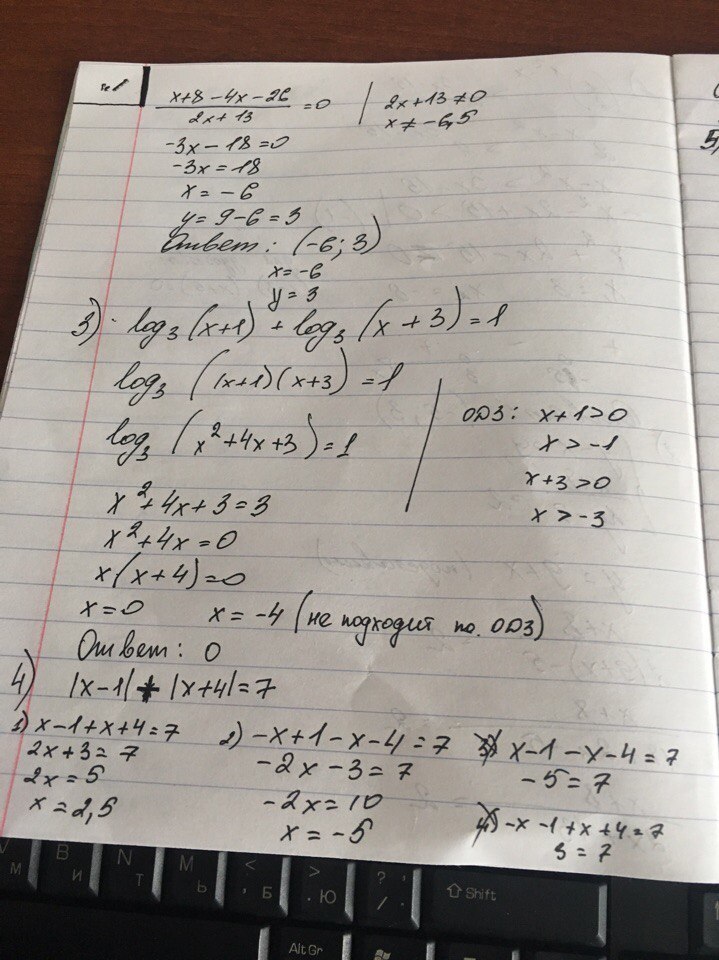 x+8-4x-26
───────── =0
2x+13
2x+13≠0
x≠-6,5
-3x-18=0
-3x=18
x=-6
y=9-6=3
Ответ: (-6; 3)
x=-6
y=3
3) log₃(x+1)+log₃(x+3)=1
log₃((x+1)(x+3)=1
log₃(x²+4x+3)=1
x²+4x+3=3
x²+4x=0
x(x+4)=0
x=0 x=-4 (не подходит по. ОДЗ)
ОДЗ: x+1>0
x>-1
x+3>0
x>-3
Ответ: 0
4) |x-1|+|x+4|=7
1) x-1+x+4=7
2x+3=7
2x=5
x=2,5
2) -x+1-x-4=7
-2x-3=7
-2x=10
x=-5
3) x-1-x-4=7
-5=7
4) -x-1+x+4=7
3=7
5)
V М
B И
N Т
M Ь
< , Б
> . Ю
? , / .
⇧Shift
Alt Gr